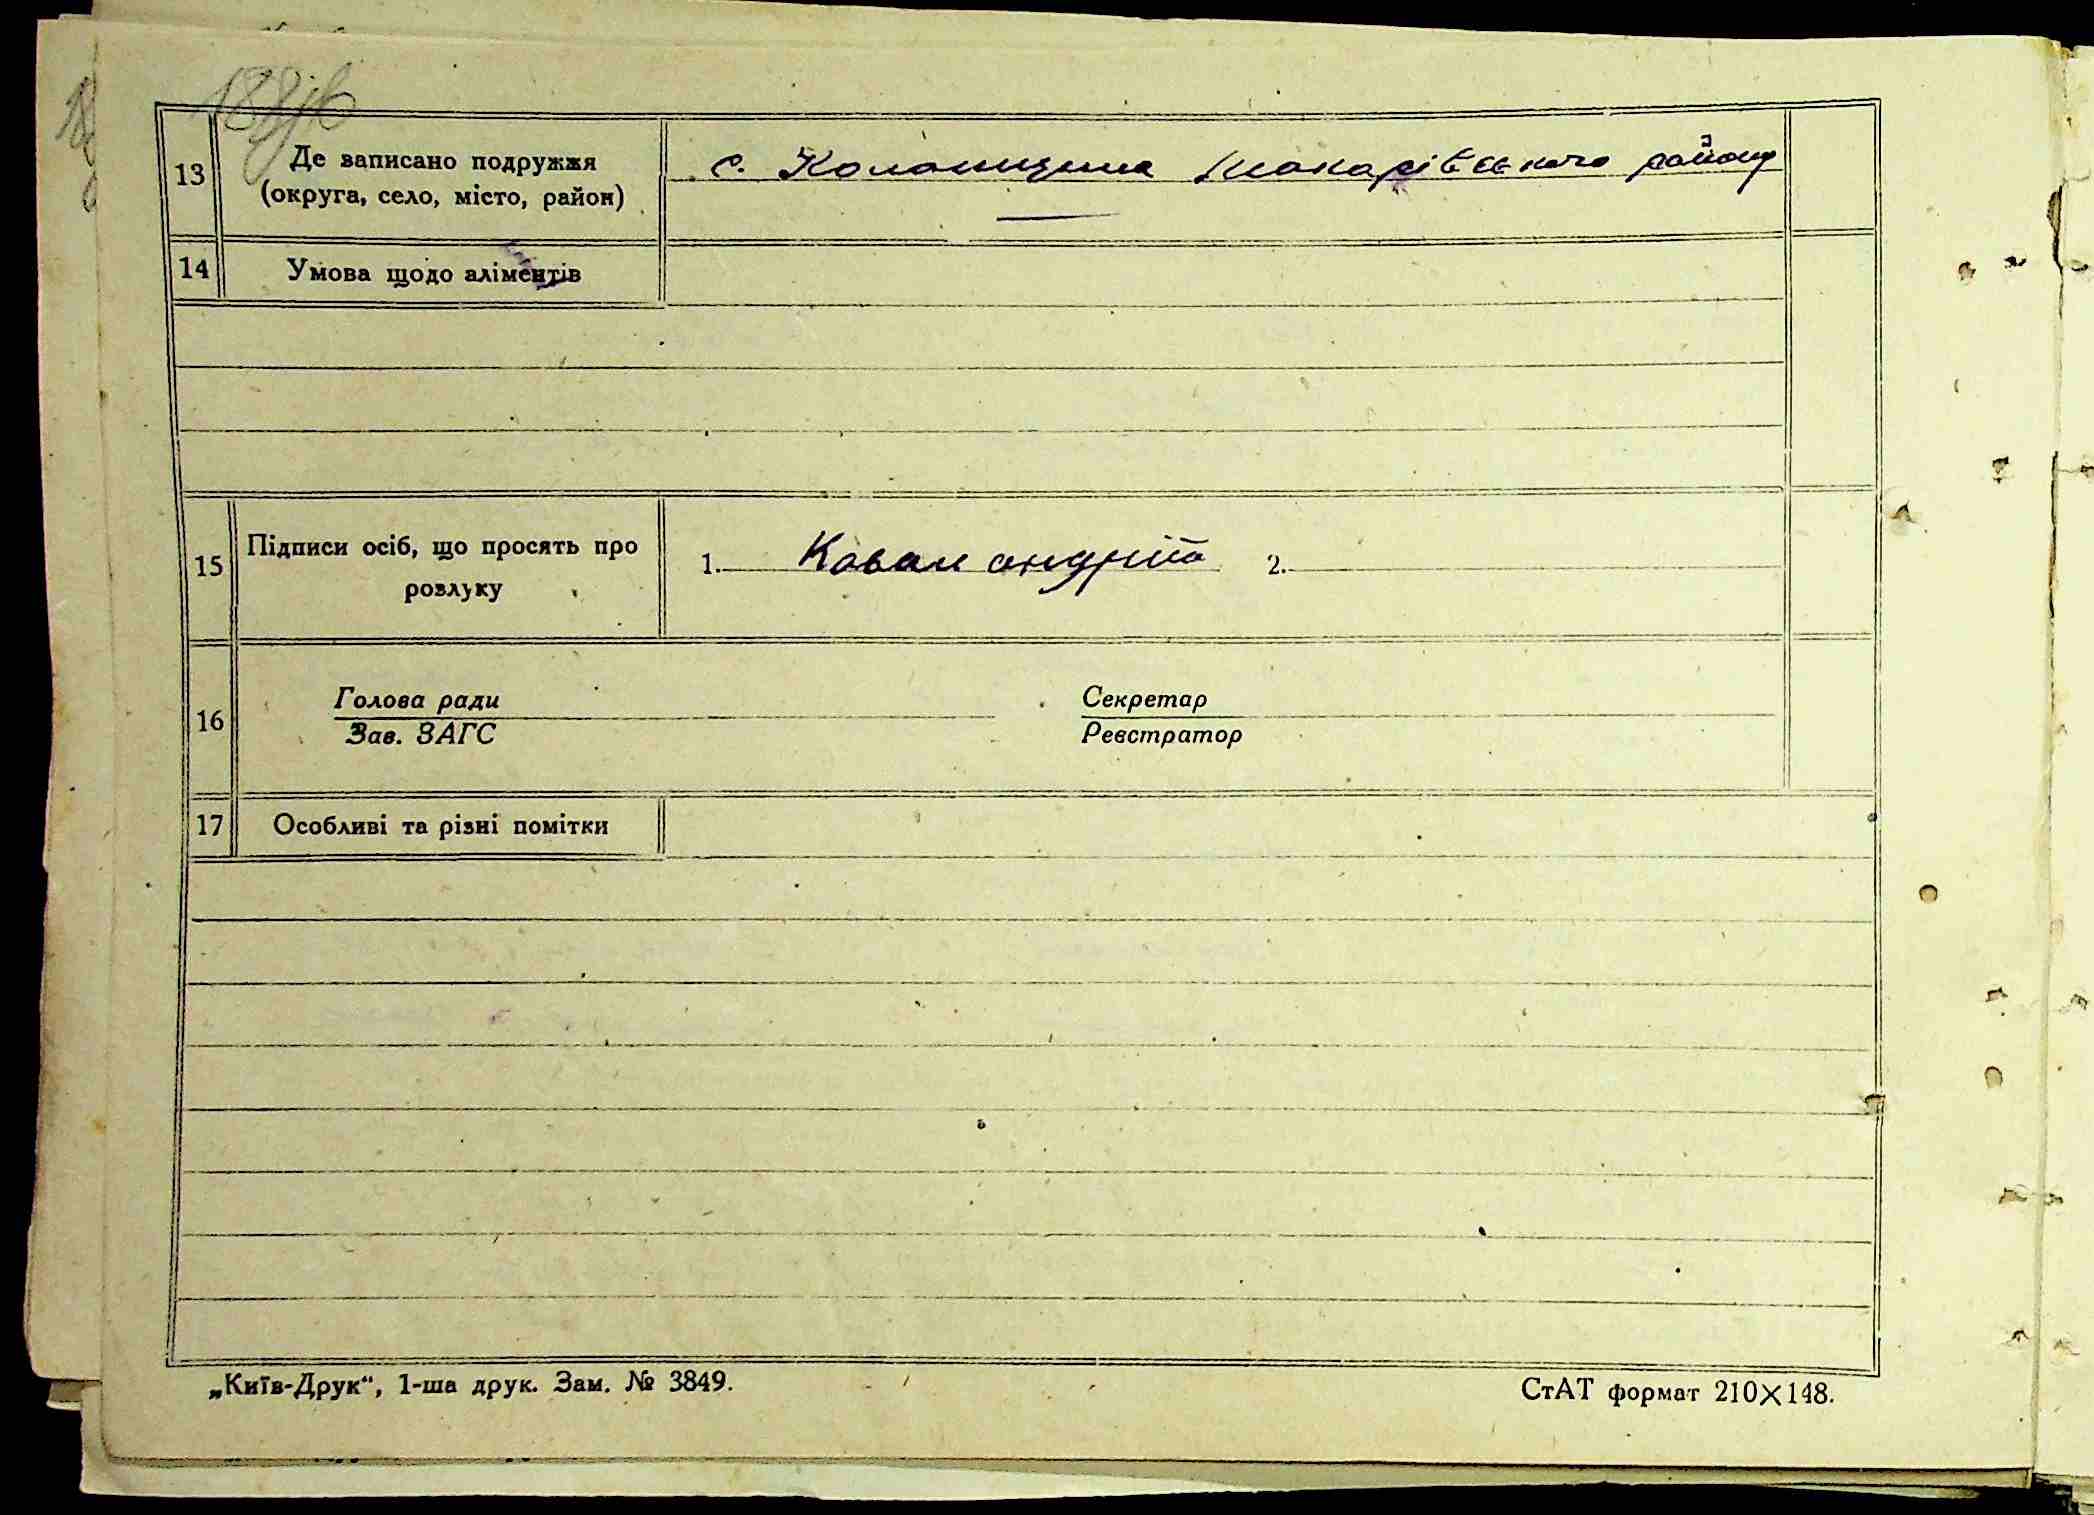 13 Де записано подружжя
(округа, село, місто, район)
с. Колонщина Макарівського району
14 Умова щодо аліментів
15 Підписи осіб, що просять про
розлуку
1. Коваль андрій 2.
16 Голова ради
Зав. ЗАГС
Секретар
Реєстратор
17 Особливі та різні помітки
„Київ-Друк“, 1-ша друк. Зам. № 3849.
СтАТ формат 210×148.